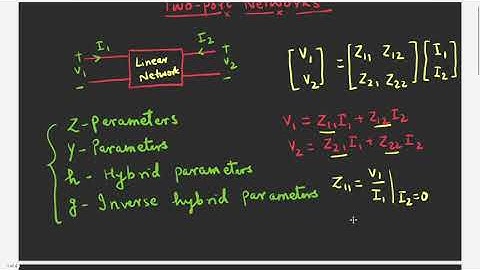 Two-port Networks
I1 I2
+ + 
V1 Linear Network V2
- -
[V1 V2] = [Z11 Z12 Z21 Z22] [I1 I2]
Z-Parameters
Y-Parameters
h-Hybrid parameters
g-Inverse hybrid parameters
V1 = Z11I1 + Z12I2
V2 = Z21I1 + Z22I2
Z11 = V1/I1 | I2=0